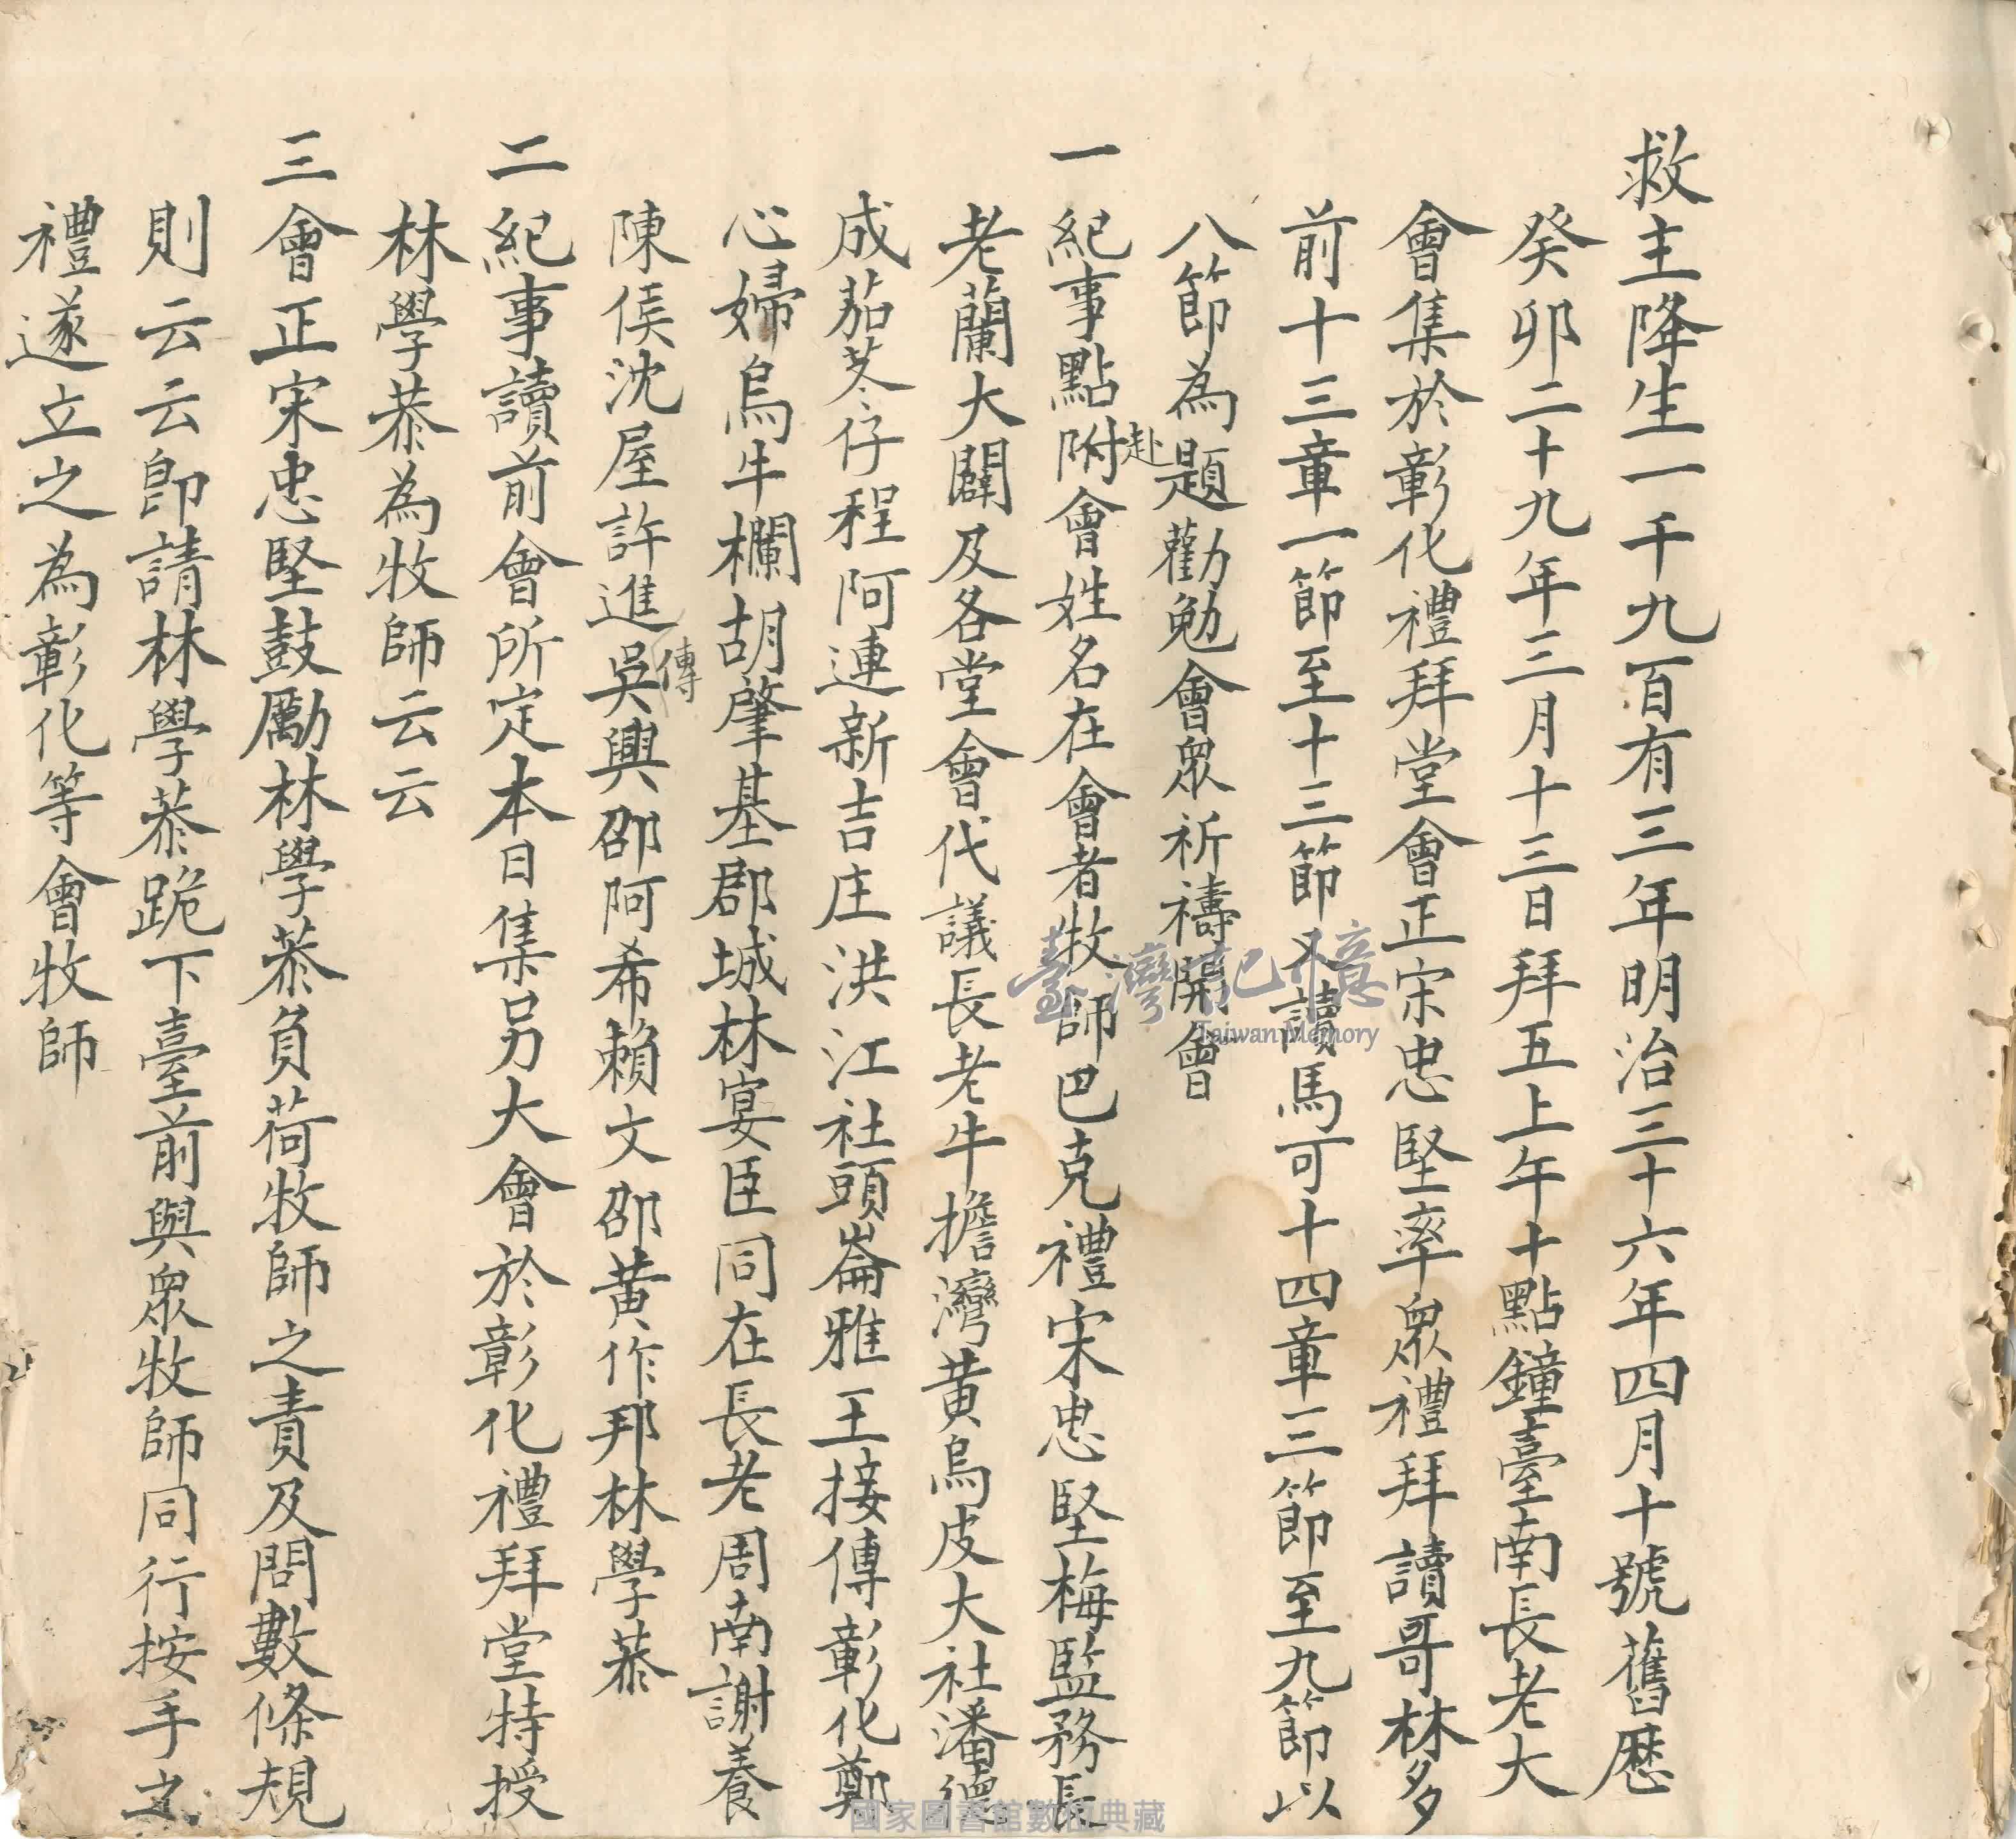 救主降生一千九百有三年明治三十六年四月十號舊歷
癸卯二十九年三月十三日拜五上午十點鐘臺南長老大
會集於彰化禮拜堂會正宋忠堅率眾禮拜讀哥林多
前十三章一節至十三節又讀馬可十四章三節至九節以
八節為題勸勉會眾祈禱開會
一紀事點附會姓名在會者牧師巴克禮宋忠堅梅監務長
赴
老蘭大闢及各堂會代議長老牛擔灣黃烏皮大社潘德
成茄苳仔程阿連新吉庄洪江社頭崙雅王接傳彰化鄭
心婦烏牛欄胡肇基郡城林宴臣同在長老周南謝養
陳俟沈屋許進吳興邵阿希賴文邵黃作邦林學恭
傳
二紀事讀前會所定本日集另大會於彰化禮拜堂特授
林學恭為牧師云云
三會正宋忠堅鼓勵林學恭負荷牧師之責及問數條規
則云云即請林學恭跪下臺前與眾牧師同行按手之
禮遂立之為彰化等會牧師
臺灣記憶
Taiwan Memory
國家圖書館數位典藏